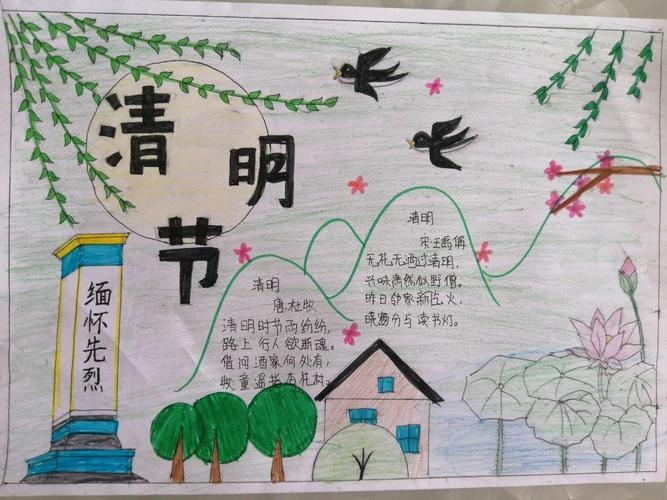 清明节
缅怀先烈
清明
唐 杜牧
清明时节雨纷纷,
路上行人欲断魂。
借问酒家何处有,
牧童遥指杏花村。
清明
宋 王禹偁
无花无酒过清明,
兴味萧然似野僧。
昨日邻家新乞火,
晓窗分与读书灯。